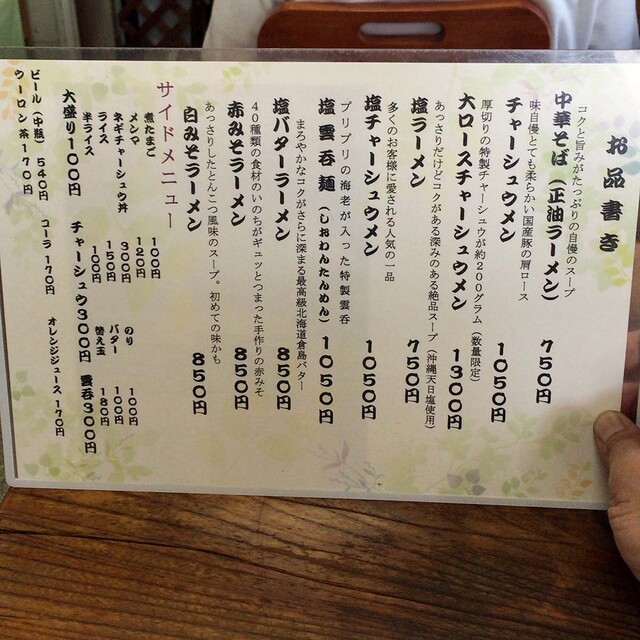 お品書き
コクと旨みがたっぷりの自慢のスープ
中華そば（正油ラーメン） 750円
味自慢とても柔らかい国産豚の肩ロース
チャーシュウメン 1050円
厚切りの特製チャーシュウが約200グラム（数量限定）
大ロースチャーシュウメン 1300円
あっさりだけどコクがある深みのある絶品スープ（沖縄天日塩使用）
塩ラーメン 750円
多くのお客様に愛される人気の一品
塩チャーシュウメン 1050円
プリプリの海老が入った特製雲呑
塩雲呑麺（しおわんたんめん） 1050円
まろやかなコクがさらに深まる最高級北海道倉島バター
塩バターラーメン 850円
40種類の食材のいのちがギュッとつまった手作りの赤みそ
赤みそラーメン 850円
あっさりしたとんこつ風味のスープ。初めての味かも
白みそラーメン 850円
サイドメニュー
煮たまご 100円 のり 100円
メンマ 120円 バター 100円
ネギチャーシュウ丼 300円 替え玉 180円
ライス 150円
半ライス 100円
大盛り100円 チャーシュウ300円 雲呑300円
ビール（中瓶）540円 コーラ 170円 オレンジジュース 170円
ウーロン茶170円